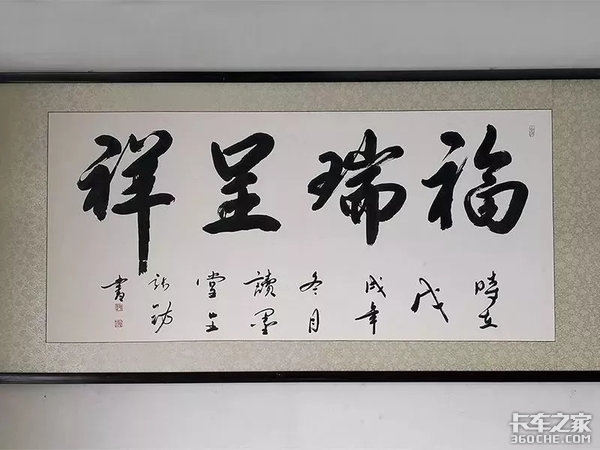 福瑞呈祥
時在
戊
戌年
冬月
讀墨
堂主
書
卡车之家
360CHE.COM